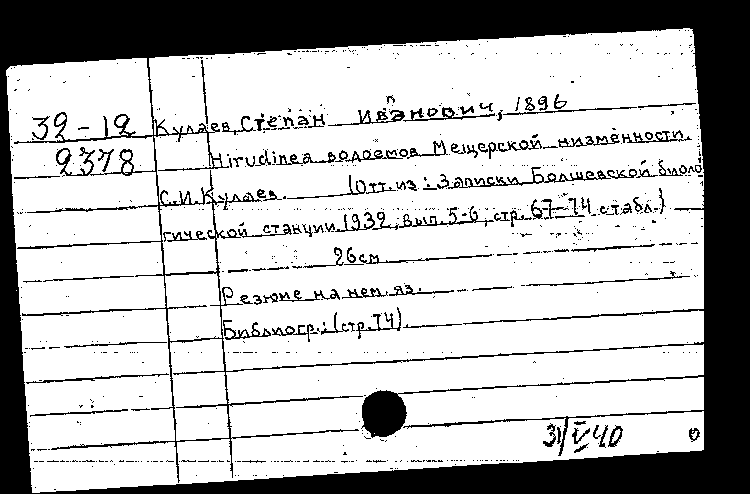 32-12 Кулаев, Степан Иванович, 1896
2378 Hirudinea водоемов Мещерской низменности.
С.И. Кулаев. (Отт. из: Записки Болшевской биоло
гической станции. 1939, вып. 5-6, стр. 67-74 с табл.)
26см
Резюме на нем. яз.
Библиогр.: (стр. 74).
31/V 40